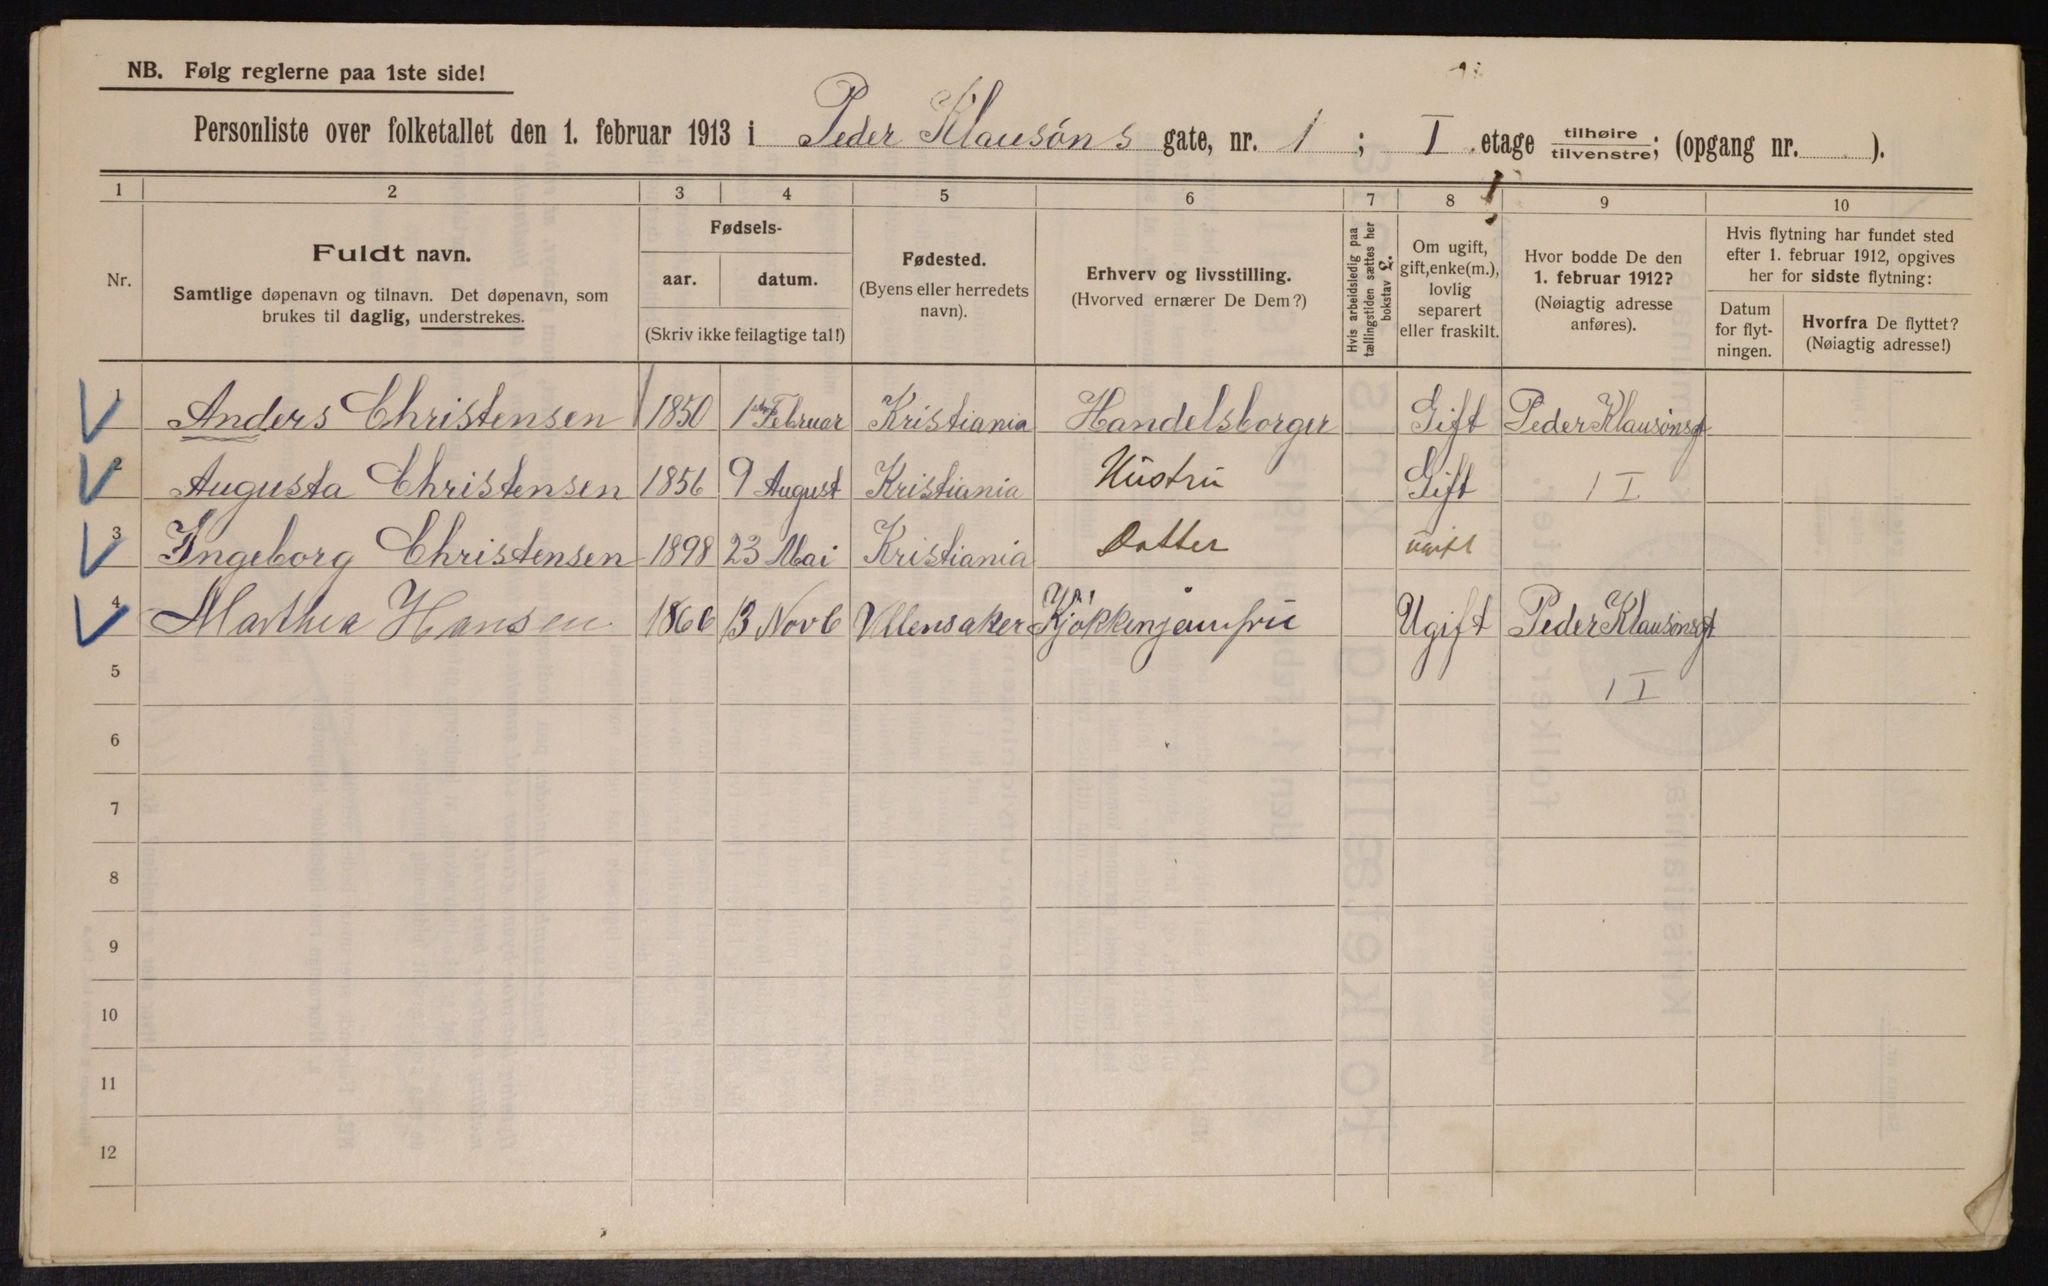 NB. Følg reglerne paa 1ste side!
Personliste over folketallet den 1. februar 1913 i Peder Klausøns gate, nr. 1 ; I etage tilhøire tilvenstre; (opgang nr. ).
1 2 3 4 5 6 7 8 9 10
Nr.
Fuldt navn.
Samtlige døpenavn og tilnavn. Det døpenavn, som
brukes til daglig, understrekes.
Fødsels-
aar. datum.
(Skriv ikke feilagtige tal!)
Fødested.
(Byens eller herredets
navn).
Erhverv og livsstilling.
(Hvorved ernærer De Dem?)
Hvis arbeidsledig paa
tællingstiden sættes her
bokstav L.
Om ugift,
gift, enke(m.),
lovlig
separert
eller fraskilt.
Hvor bodde De den
1. februar 1912?
(Nøiagtig adresse
anføres).
Hvis flytning har fundet sted
efter 1. februar 1912, opgives
her for sidste flytning:
Datum
for flyt-
ningen.
Hvorfra De flyttet?
(Nøiagtig adresse!)
1 Anders Christensen 1850 1ste Februar Kristiania Handelsborger Gift Peder Klausønsgt
2 Augusta Christensen 1856 9 August Kristiania Hustru Gift 1 I
3 Ingeborg Christensen 1898 23 Mai Kristiania Datter ugift
4 Marthea Hansen 1866 13 Novb Ullensaker Kjøkkenjomfru Ugift Peder Klausønsgt
5 1 I
6
7
8
9
10
11
12